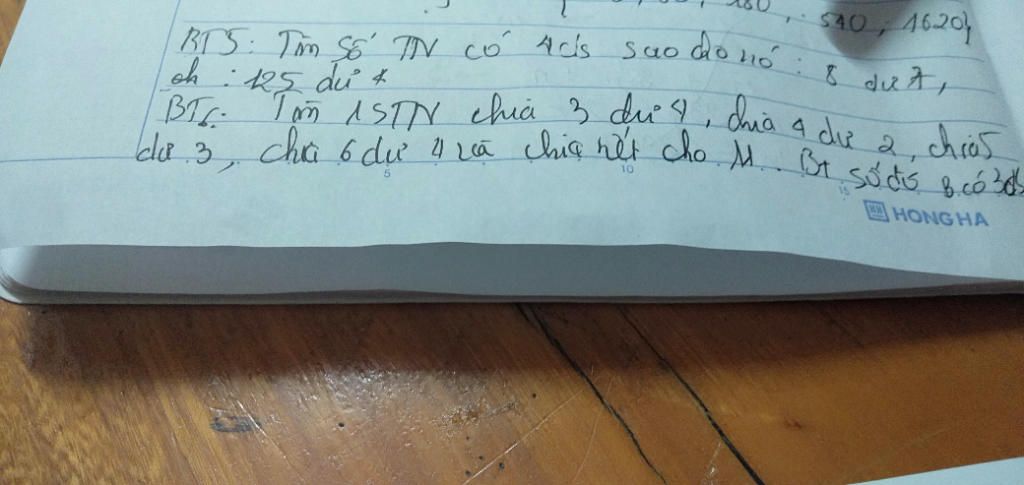 180, 540, 1620}
BT5: Tìm Số TN có 4 c/s sao cho nó : 8 dư 7,
ch : 125 dư 4
BT6: Tìm 1 STN chia 3 dư 1, chia 4 dư 2, chia 5
dư 3, chia 6 dư 4 và chia hết cho 11. Bt số đó có 3 c/s
5 10 15
HONG HA